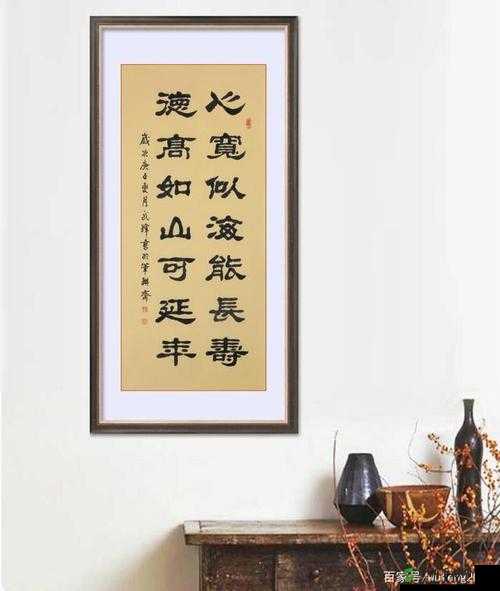 心寬似海能長壽
德高如山可延年
歲次庚子夏月武緯書於筆耕齋
百家号/wufengzl